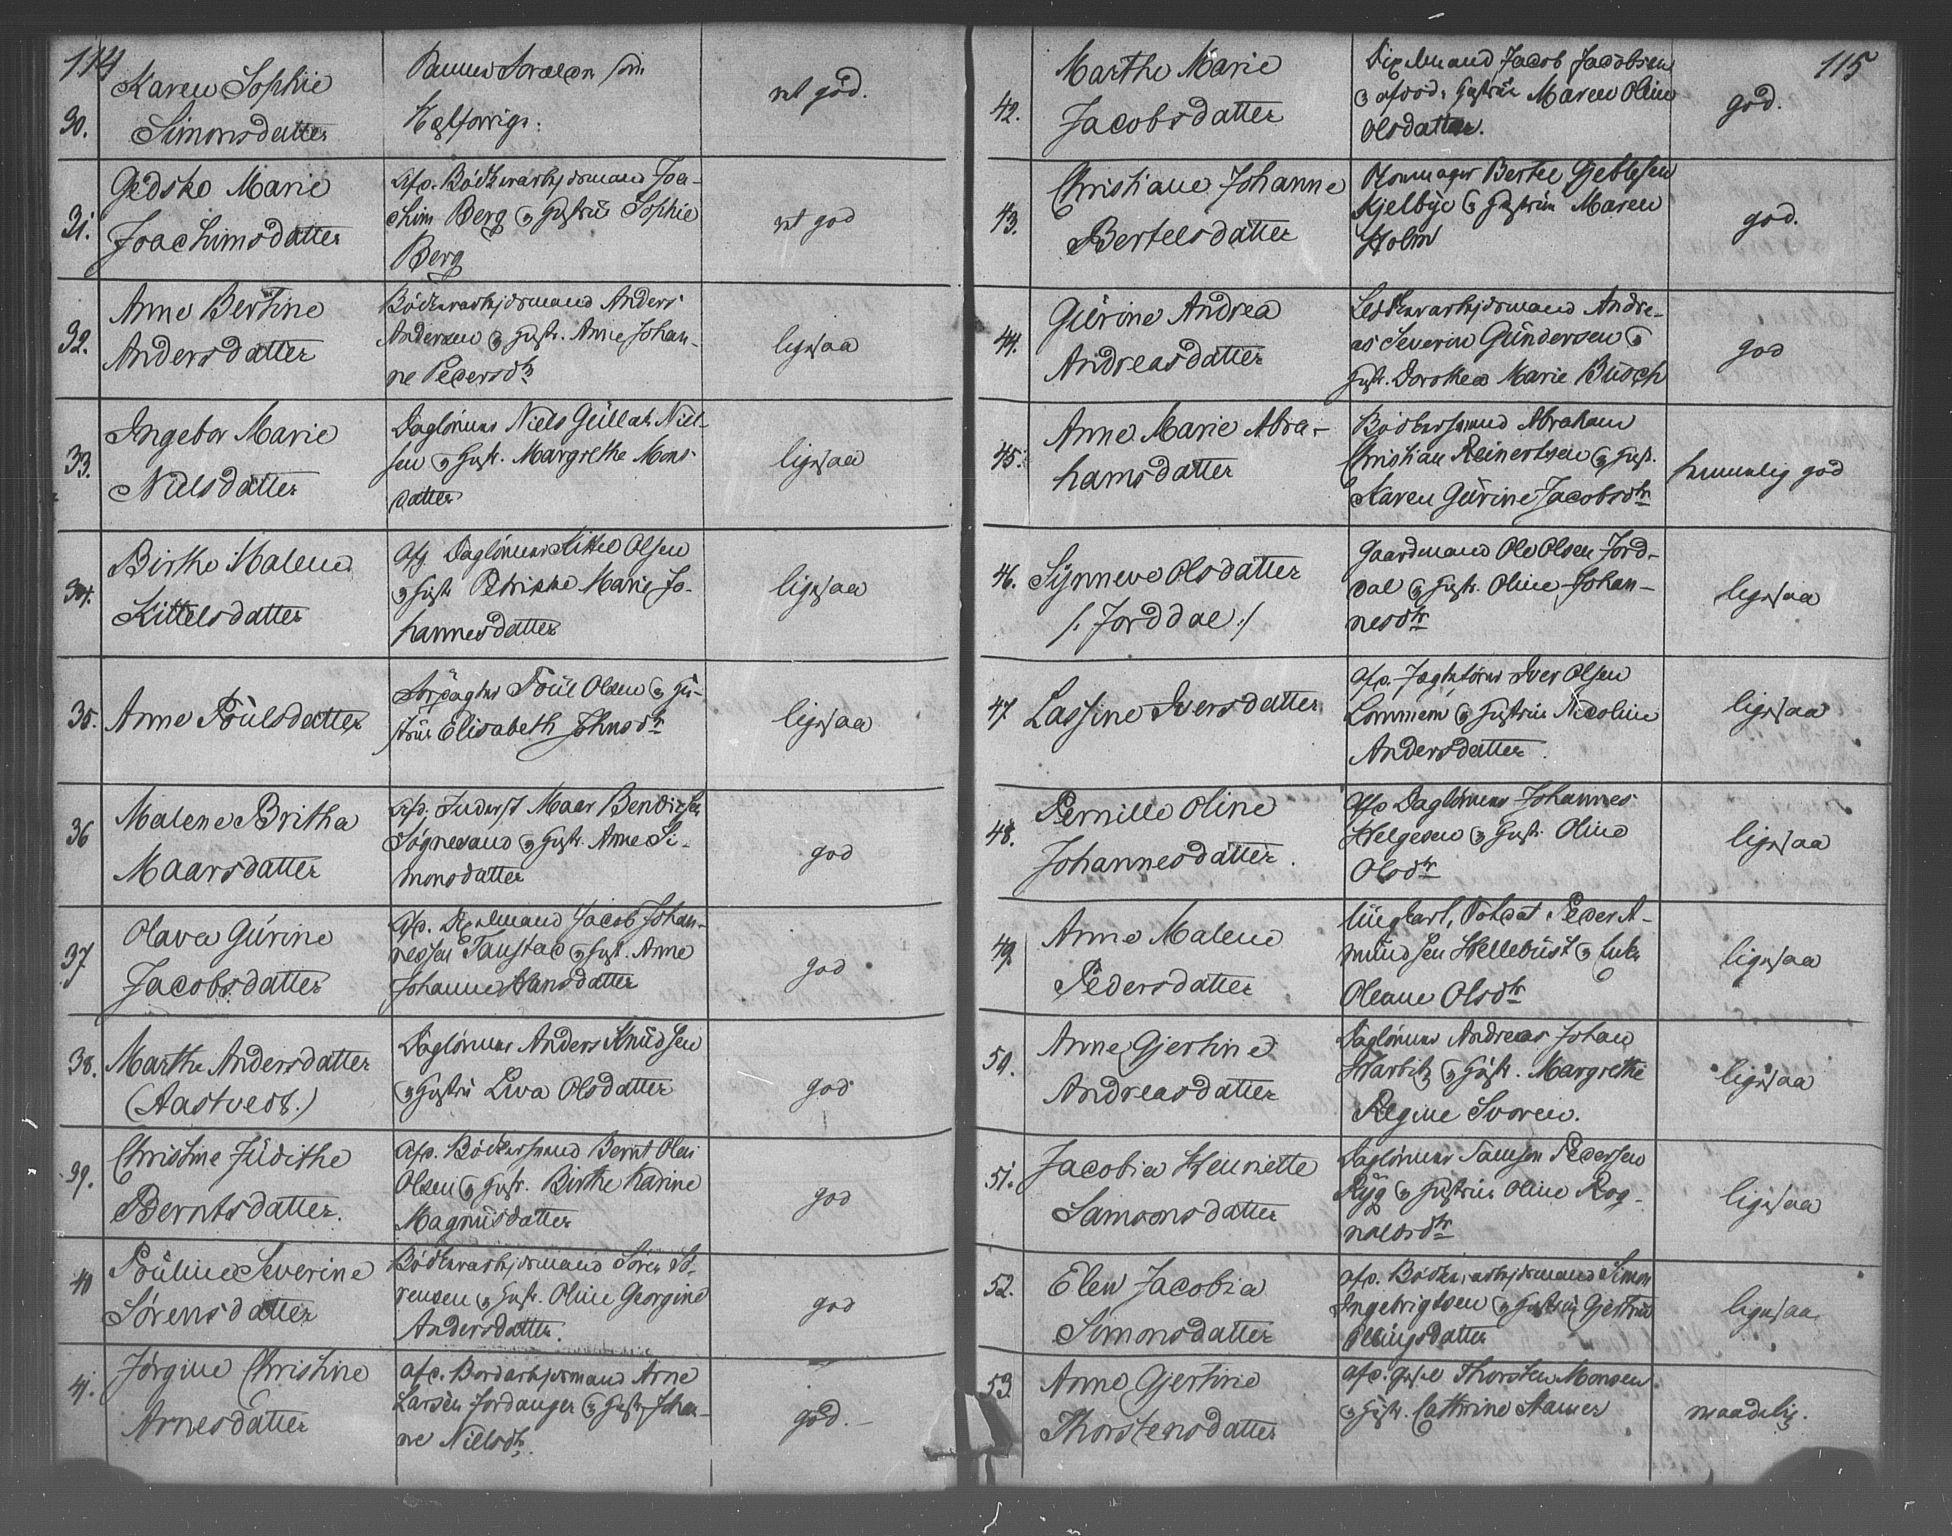 114
30.
Karen Sophie
Simonsdatter
nt god.
31.
Gedske Marie
Joachimsdatter
Afd. Bødkerarbejdsmand Joa-
chim Berg & Hustrue Sophie
Berg
nt god
32.
Anne Bertine
Andersdatter
Bødkerarbejdsmand Anders
Andersen & Hustr. Anne Johan-
ne Pedersdtr
ligesaa
33.
Ingebor Marie
Nielsdatter
Daglønner Niels Gullak Niel-
sen & Hustr. Margrethe Mons-
datter
ligesaa
34.
Birthe Malene
Kittelsdatter
Afd Daglønner Kittel Olsen
& Hustr Petrikke Marie Jo-
hannesdatter
ligesaa
35.
Anne Poulsdatter
Poul Olsen & Hu-
strue Elisabeth Johnsdtr
ligesaa
36
Malene Britha
Maarsdatter
Afd. Maar Bendixen
Søgnesand & Hustr. Anne Si-
monsdatter
god
37
Olava Gurine
Jacobsdatter
Afd. Jacob Johan-
nessen Taustad & Hust. Anne
Johanne Hansdatter
god
38.
Marthe Andersdatter
(Aastvedt.)
Daglønner Anders Knudsen
& Hustru Eva Olsdatter
god
39.
Christine Judithe
Berntsdatter.
Afd. Bødkersvend Bernt Olai
Olsen & Hustr. Birthe Karine
Magnusdatter
god
40
Pouline Severine
Sørensdatter
Bødkerarbejdsmand Søren Sø-
rensen & Hustr. Oline Georgine
Andersdatter.
god
41.
Jørgine Christine
Arnesdatter
Afd. Bordarbejdsmand Arne
Larsen Jordanger & Hustr Johan-
ne Nielsdtr.
god.
115
42.
Marthe Marie
Jacobsdatter
Jacob Jacobsen
& afdøde Hustrue Maren Oline
Olsdatter.
god.
43.
Christiane Johanne
Bertelsdatter
Bertel Gjeblesen
Kjelbye & Hustrue Maren
Holm
god.
44.
Gurine Andrea
Andreasdatter
Bødkerarbejdsmand Andre-
as Severin Gundersen &
Hustr. Dorothea Marie Busch
god
45.
Anne Marie Abra-
hamsdatter
Bødkersvend Abraham
Christian Reinertsen & Hust.
Karen Gurine Jacobsdtr
temmelig god
46.
Synneve Olsdatter
/: Jorddal :/
Gaardmand Ole Olsen Jord-
dal & Hustr. Oline Johan-
nesdtr
ligesaa
47
Lassine Iversdatter
Afd. Jægtefører Iver Olsen
Lommem & Hustrue Nicoline
Andersdatter
ligesaa
48.
Pernille Oline
Johannesdatter.
Afd Daglønner Johannes
Helgesen & Hustr. Oline
Olsdtr
ligesaa
49.
Anne Malene
Pedersdatter
Ungkarl, Soldat Peder A-
mundsen Hellebust & Enke
Oleane Olsdtr
ligesaa
50.
Anne Gjertine
Andreasdatter
Daglønner Andreas Johan
Harbitz & Hustr. Margrethe
Regine Svoren.
ligesaa
51.
Jacobia Henriette
Samsonsdatter
Daglønner Samson Pedersen
Ryg & Hustrue Oline Rog-
noldsdtr
ligesaa
52.
Elen Jacobia
Simonsdatter
Afd. Bødkerarbejdsmand Simon
Ingebrigtsen & Hustrue Gjertrud
Ellingsdatter
ligesaa
53.
Anne Gjertine
Thorstensdatter
Afd. Thorsten Monsen
& Hustr. Cathrine Hamer
maadelig.